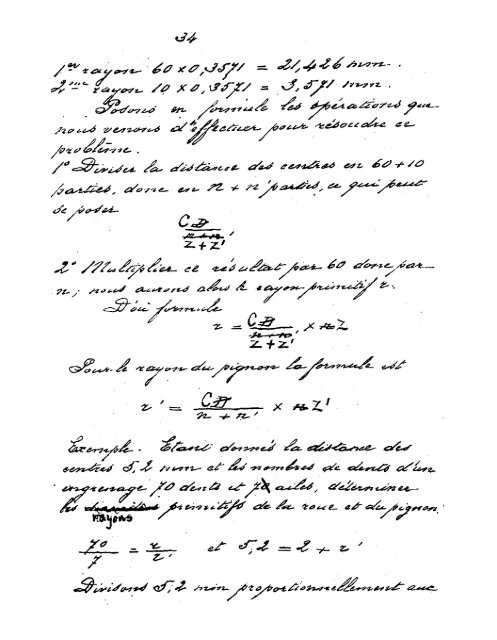 34
1er rayon 60 x 0,3571 = 21,426 mm.
2me rayon 10 x 0,3571 = 3,571 mm.
Posons en formule les opérations que
nous venons d'effectuer pour résoudre ce
problême.
1° Diviser la distance des centres en 60 + 10
parties, donc en n + n' parties, ce qui peut
se poser
CD
n+n'
Z+Z'
2° Multiplier ce résultat par 60 donc par
n; nous aurons alors le rayon primitif r.
D'où formule
r = CD / n+n' Z+Z' x n Z
Pour le rayon du pignon la formule est
r' = CD / n + n' x n Z'
Exemple. Etant donnés la distance des
centres 5,2 mm et les nombres de dents d'un
engrenage 70 dents et 7 ailes, déterminer
les rayons primitifs de la roue et du pignon.
70/7 = r/r' et 5,2 = r + r'
Divisons 5,2 mm proportionnellement aux